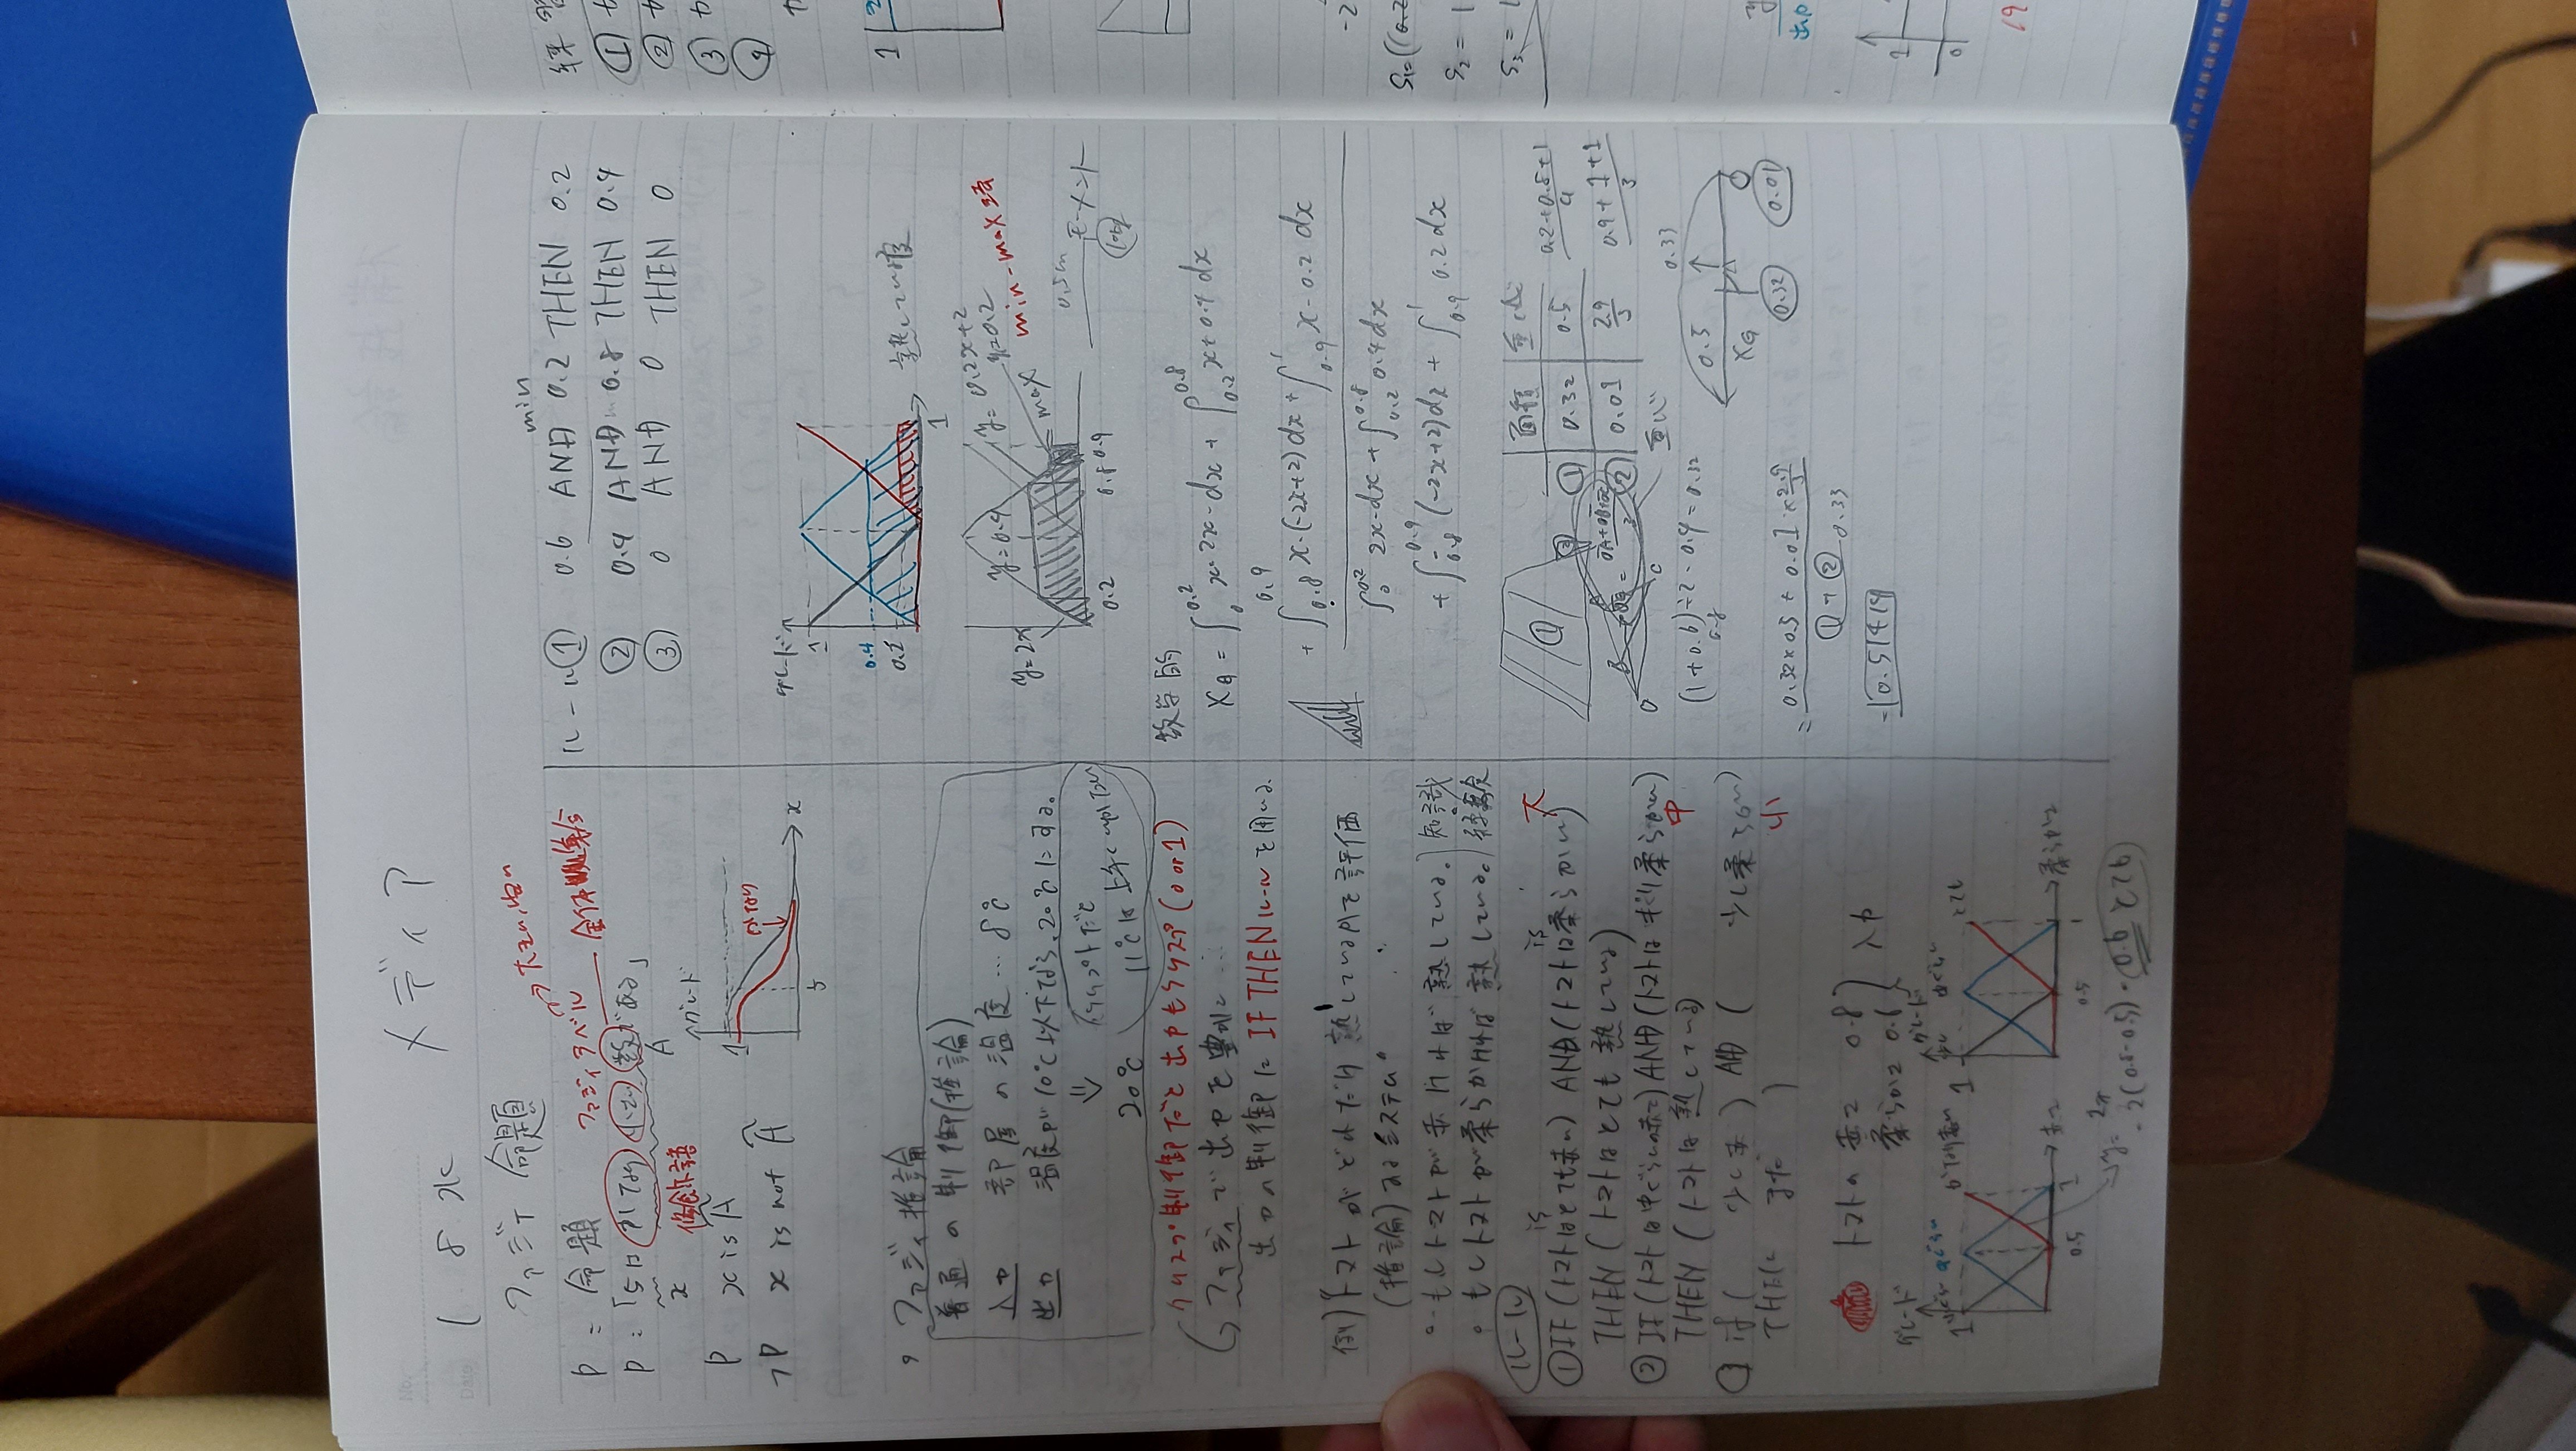 メディア
1 8 水
ファジィ 命題
大きい,
P = 命題
ファジィラベル
全体集合
P = 「5は かなり 小さい 数である」
x
修飾語
A
P x is A
¬P x is not A
グレード
1
かなり
5
x
ファジィ推論
普通の制御(推論)
入力 部屋の温度…8℃
出力 温度が10℃以下なら、20℃にする。
⇓
20℃
クリスプだと
11℃は上手くいかない
クリスプ制御だと出力もクリスプ(0 or 1)
ファジィで出力を豊かに…
出力の制御に IF THENルールを用いる。
例) トマトがどれだけ熟しているかを評価
(推論)するシステム
もしトマトが赤ければ熟している。
もしトマトが柔らかければ熟している。
知識
経験
ルール
is is
大
① IF (トマトはとても赤い) AND (トマトは柔らかい)
THEN (トマトはとても熟している)
② IF (トマトは中ぐらいの赤さ) AND (トマトは 柔らかい)
中
THEN (トマトは熟している)
if ( 少し赤 ) AND ( 少し柔らかい)
THEN まだ )
小
トマトの 赤さ 0.8
柔らかさ 0.6
入力
グレード
1
中ぐらい
かなり赤い
0.5
1
赤さ
グレード
1
中ぐらい
とても
0.5
1
柔らかさ
y = 2x
2(0.8-0.5) = 0.6 とても
min
ルール① 0.6 AND 0.2 THEN 0.2
② 0.4 AND 0.8 THEN 0.4
③ 0 AND 0 THEN 0
グレード
1
0.4
0.2
1
熟している度
y=2x
y=0.4
y=0.2x+2
y=0.2
max
min-max 法
0.2
0.8 0.9
0.5m
モーメント
数学的
XG = ∫₀^0.2 x·2x dx + ∫0.2^0.8 x+0.4 dx
+ ∫0.8^0.9 x·(-2x+2) dx + ∫0.9^1 x-0.2 dx
∫₀^0.2 2x dx + ∫0.2^0.8 0.4 dx
+ ∫0.8^0.9 (-2x+2) dx + ∫0.9^1 0.2 dx
面積 重心
① 0.32 0.5
0.2+0.8+1 / 4
② 0.01 2.9/3
0.9+1+1 / 3
①
O
C
重心
(1+0.6)÷2·0.4=0.32
0.8
0.33
0.5
XG
0.32
0.01
= 0.32×0.5 + 0.01×2.9/3
①+② 0.33
=0.51414
練習
①
②
③
④
1
-2
S₂ = 1
S₃ = 1
y
出力
1
0